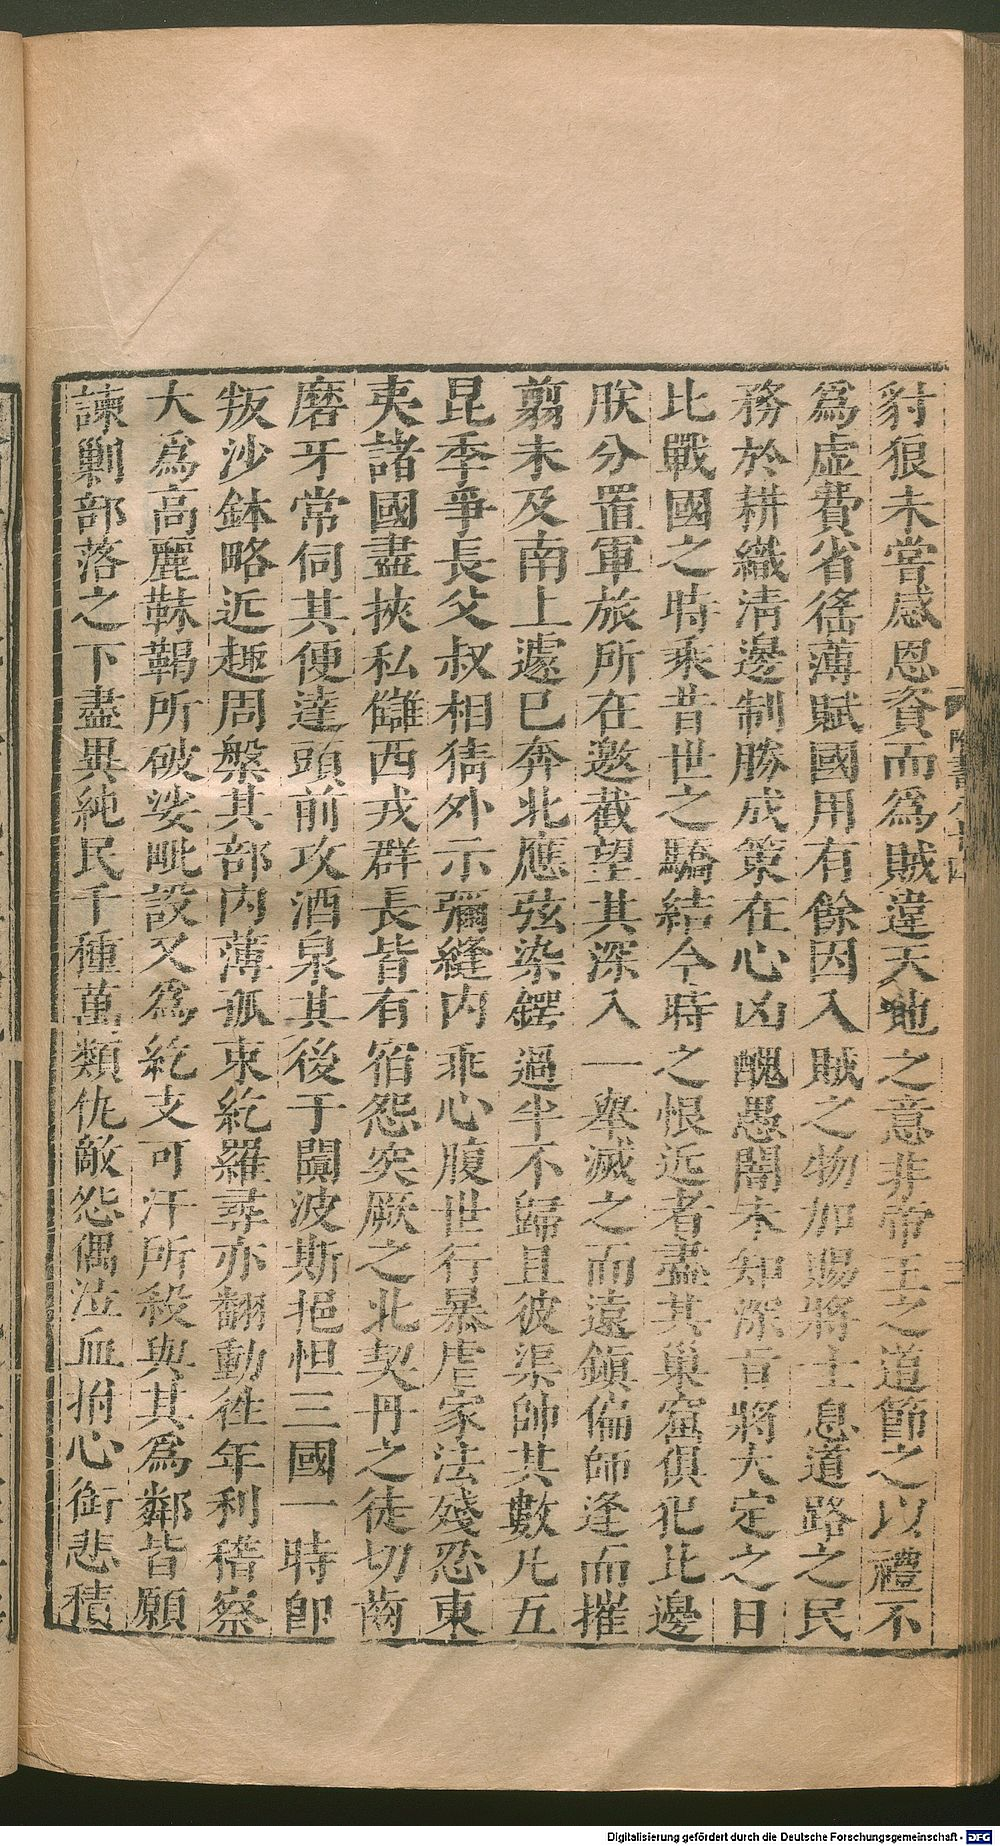 豺狼未嘗感恩資而爲賊違天地之意非帝王之道節之以禮不
爲虚費省徭薄賦國用有餘因入賊之物加賜將士息道路之民
務於耕織清邊制勝成策在心凶醜愚闇未知深旨將大定之日
比戰國之時乘昔世之驕結今時之恨近者盡其巢窟俱犯北邊
朕分置軍旅所在邀截望其深入一舉滅之而遠鎮偏師逢而摧
翦未及南上遽已奔北應弦染鍔過半不歸且彼渠帥其數凡五
昆季爭長父叔相猜外示彌縫内乖心腹世行暴虐家法殘忍東
夷諸國盡挾私讎西戎群長皆有宿怨突厥之北契丹之徒切齒
磨牙常伺其便達頭前攻酒泉其後于闐波斯挹怛三國一時即
叛沙鉢略近趣周槃其部内薄孤東紇羅尋亦翻動徃年利稽察
大爲高麗靺鞨所破娑毗設又爲紇支可汗所殺與其爲鄰皆願
諫剿部落之下盡異純民千種萬類仇敵怨偶泣血拊心銜悲積
隋書八十四
三
Digitalisierung gefördert durch die Deutsche Forschungsgemeinschaft - DFG